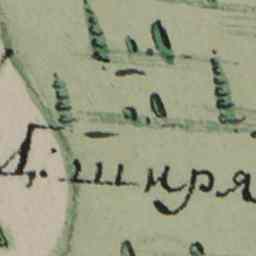 Д: шнря